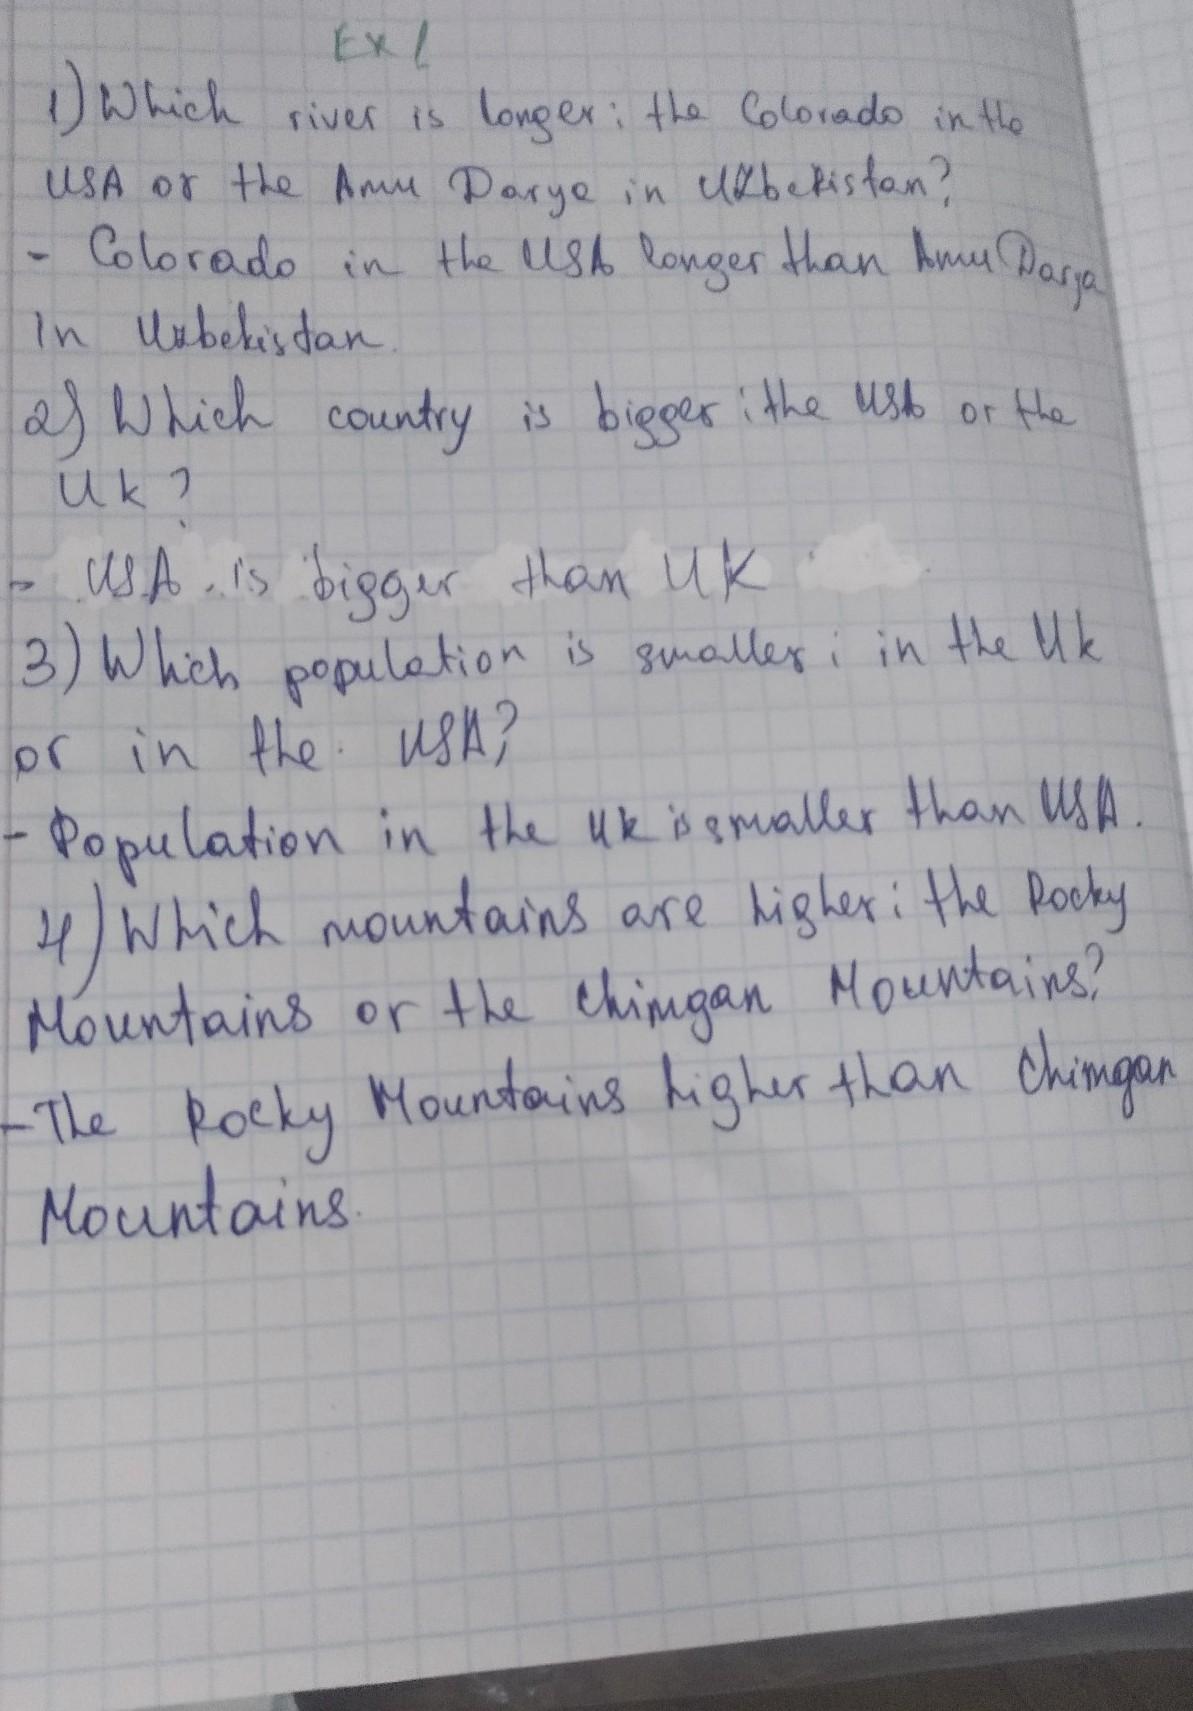 Ex 1
1) Which river is longer: the Colorado in the
USA or the Amu Darya in Uzbekistan?
- Colorado in the USA longer than Amu Darya
in Uzbekistan.
2) Which country is bigger: the USA or the
Uk?
- USA is bigger than UK
3) Which population is smaller: in the Uk
or in the USA?
- Population in the Uk is smaller than USA.
4) Which mountains are higher: the Rocky
Mountains or the Chimgan Mountains?
- The Rocky Mountains higher than Chimgan
Mountains.